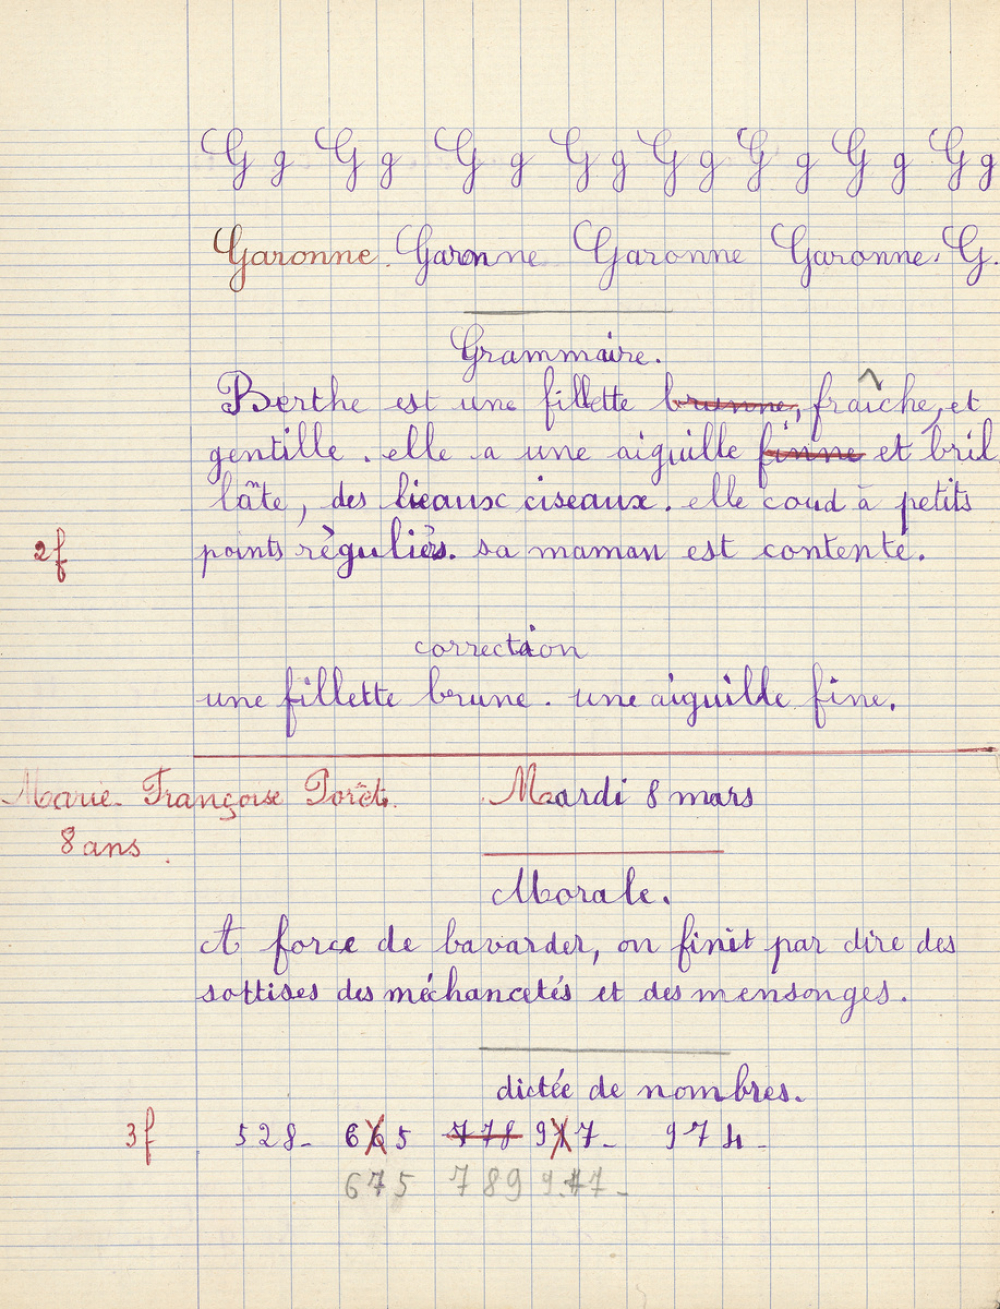 G g G g G g G g G g G g G g G g
Garonne. Garonne Garonne Garonne. G.
Grammaire.
Berthe est une fillette brunne, fraîche, et
gentille. elle a une aiguille finne et bril
lante, des ciseaux. elle coud à petits
points réguliers. sa maman est contente.
2f
correction
une fillette brune. une aiguille fine.
Marie Françoise Porêt. Mardi 8 mars
8 ans.
Morale.
A force de bavarder, on finit par dire des
sottises des méchancetés et des mensonges.
dictée de nombres.
3f 528_ 665 778 917_ 974_
675 789 917_